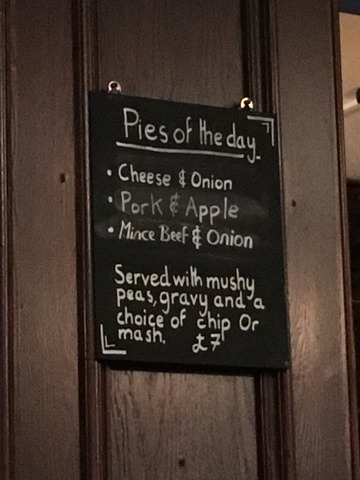 Pies of the day
• Cheese & Onion
• Pork & Apple
• Mince Beef & Onion
Served with mushy
peas, gravy and a
choice of chip Or
mash. £7